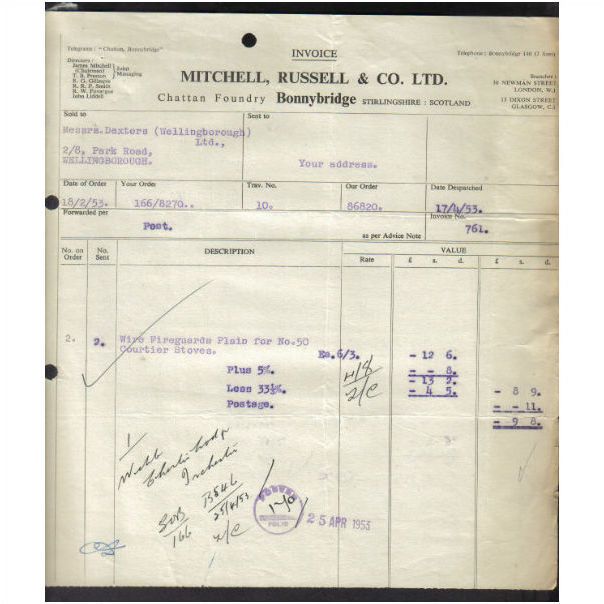 Telegrams: "Chatton, Bonnybridge"
INVOICE
Telephone: Bonnybridge
Directors:
James Mitchell
(Chairman)
T. B. Preston
Joint
Managing
R. R. P. Smith
John Liddell
MITCHELL, RUSSELL & CO. LTD.
Chattan Foundry Bonnybridge STIRLINGSHIRE : SCOTLAND
Branches:
50 NEWMAN STREET
LONDON, W.1
15 DIXON STREET
GLASGOW, C.1
Sold to
Sent to
Messrs. Dexters (Wellingborough)
Ltd.,
2/8, Park Road,
WELLINGBOROUGH.
Your address.
Date of Order
Your Order
Trav. No.
Our Order
Date Despatched
18/2/53.
166/8270..
10.
86820.
17/4/53.
Forwarded per
Post.
as per Advice Note
Invoice No.
761.
No. on Order
No. Sent
DESCRIPTION
Rate
VALUE
£ s. d.
£ s. d.
2. 2. Wire Fireguards Plain for No.50
Courtier Stoves. Ea. 6/3. - 12 6.
Plus 5%. - - 8.
- 13 2.
Less 33⅓%. - 4 5. - 8 9.
Postage. - - 11.
- 9 8.
1
Webb
B546
25/4/53
166
FOLIO
25 APR 1953